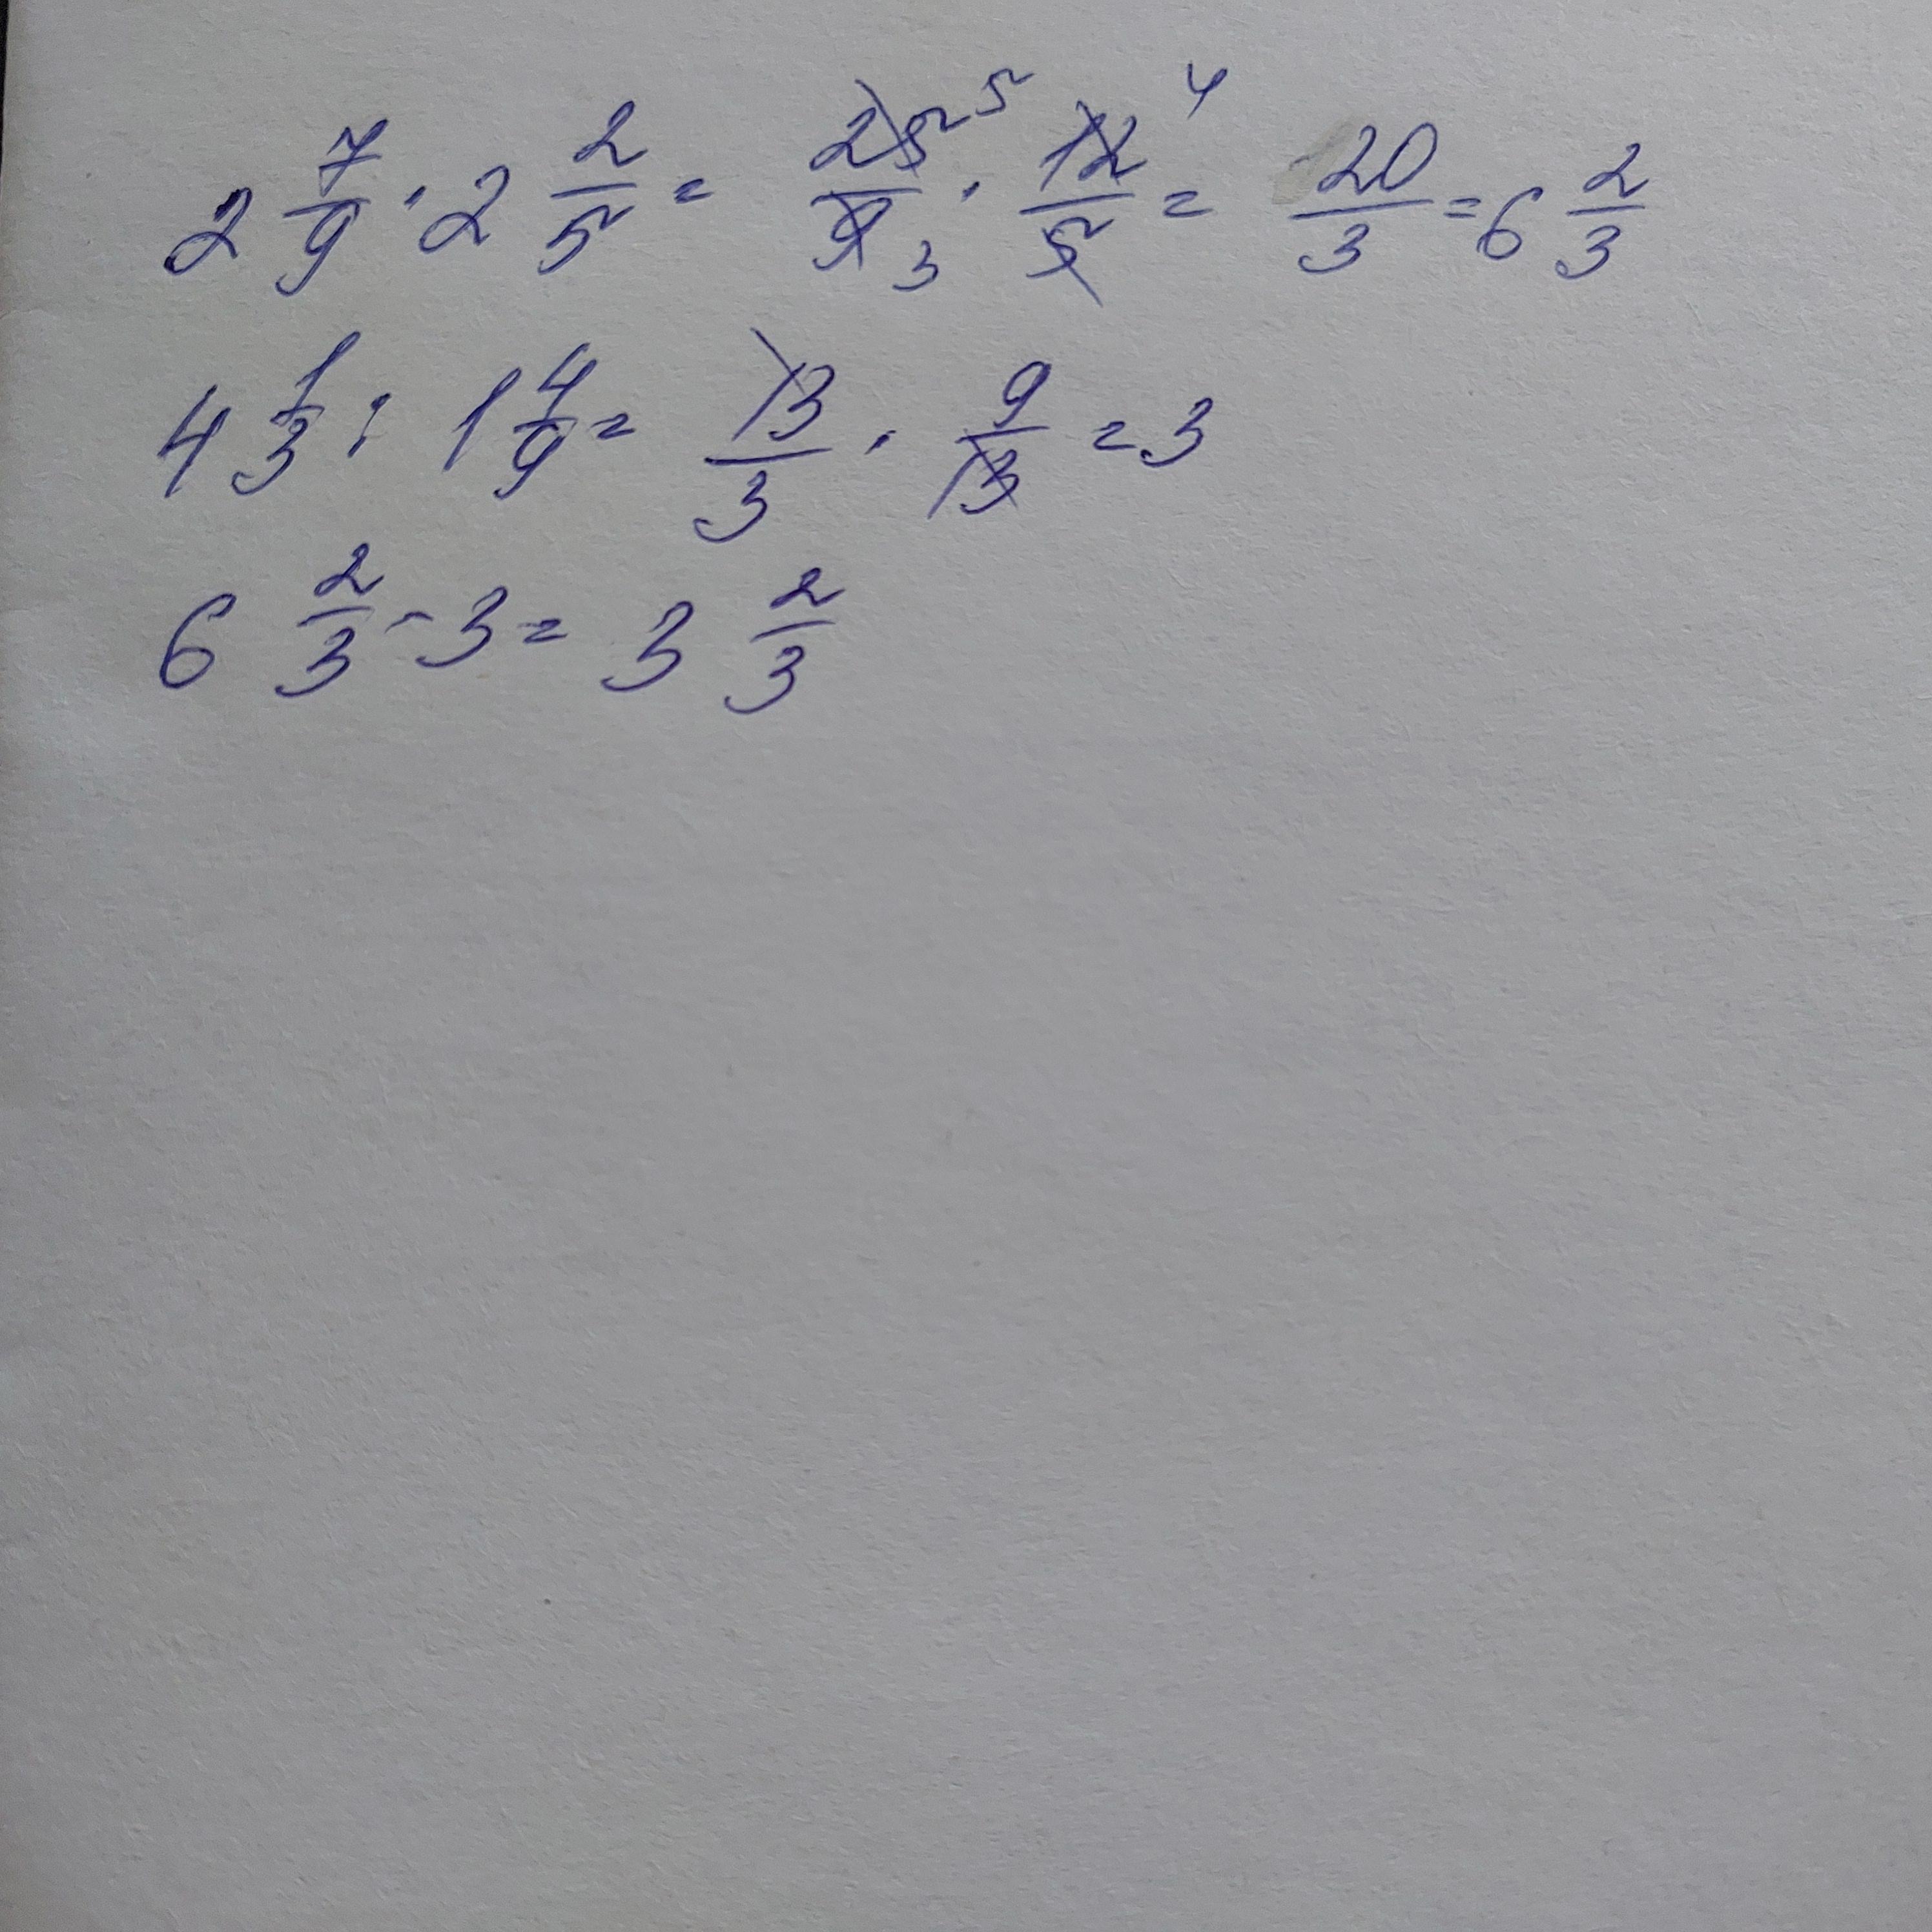 2 7/9 · 2 2/5 = 25 5/9 3 · 12 4/5 = 20/3 = 6 2/3
4 1/3 : 1 4/9 = 13/3 · 9/13 = 3
6 2/3 - 3 = 3 2/3